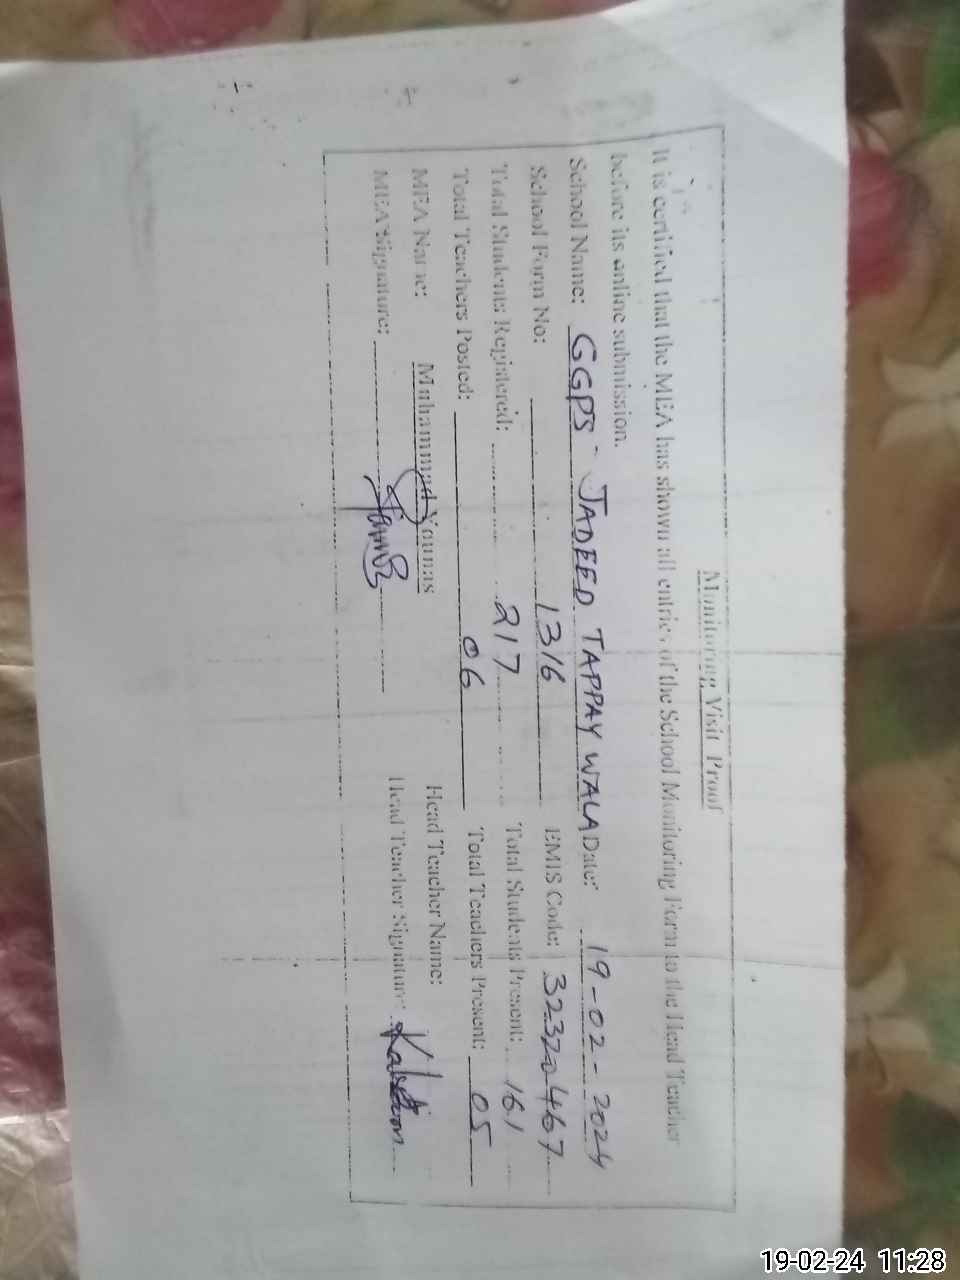 Monitoring Visit Proof
It is certified that the MEA has shown all entries of the School Monitoring Form to the Head Teacher
before its online submission.
School Name: GGPS - JADEED TAPPAY WALA Date: 19-02-2024
School Form No: 1316 EMIS Code: 32320467
Total Students Registered: 217 Total Students Present: 161
Total Teachers Posted: 06 Total Teachers Present: 05
MEA Name: Muhammad Younas Head Teacher Name:
MEA Signature: Head Teacher Signature:
19-02-24 11:28